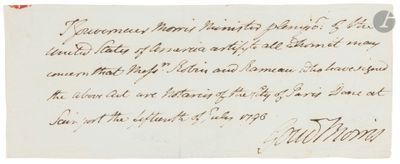 I Gouverneur Morris Minister Plenipo: of the
United States of America certify to all whom it may
concern that Messrs. Robin and Rameau who have signed
the above Act are Notaries of the City of Paris Done at
Sain port the fifteenth of July 1793
Gouv Morris